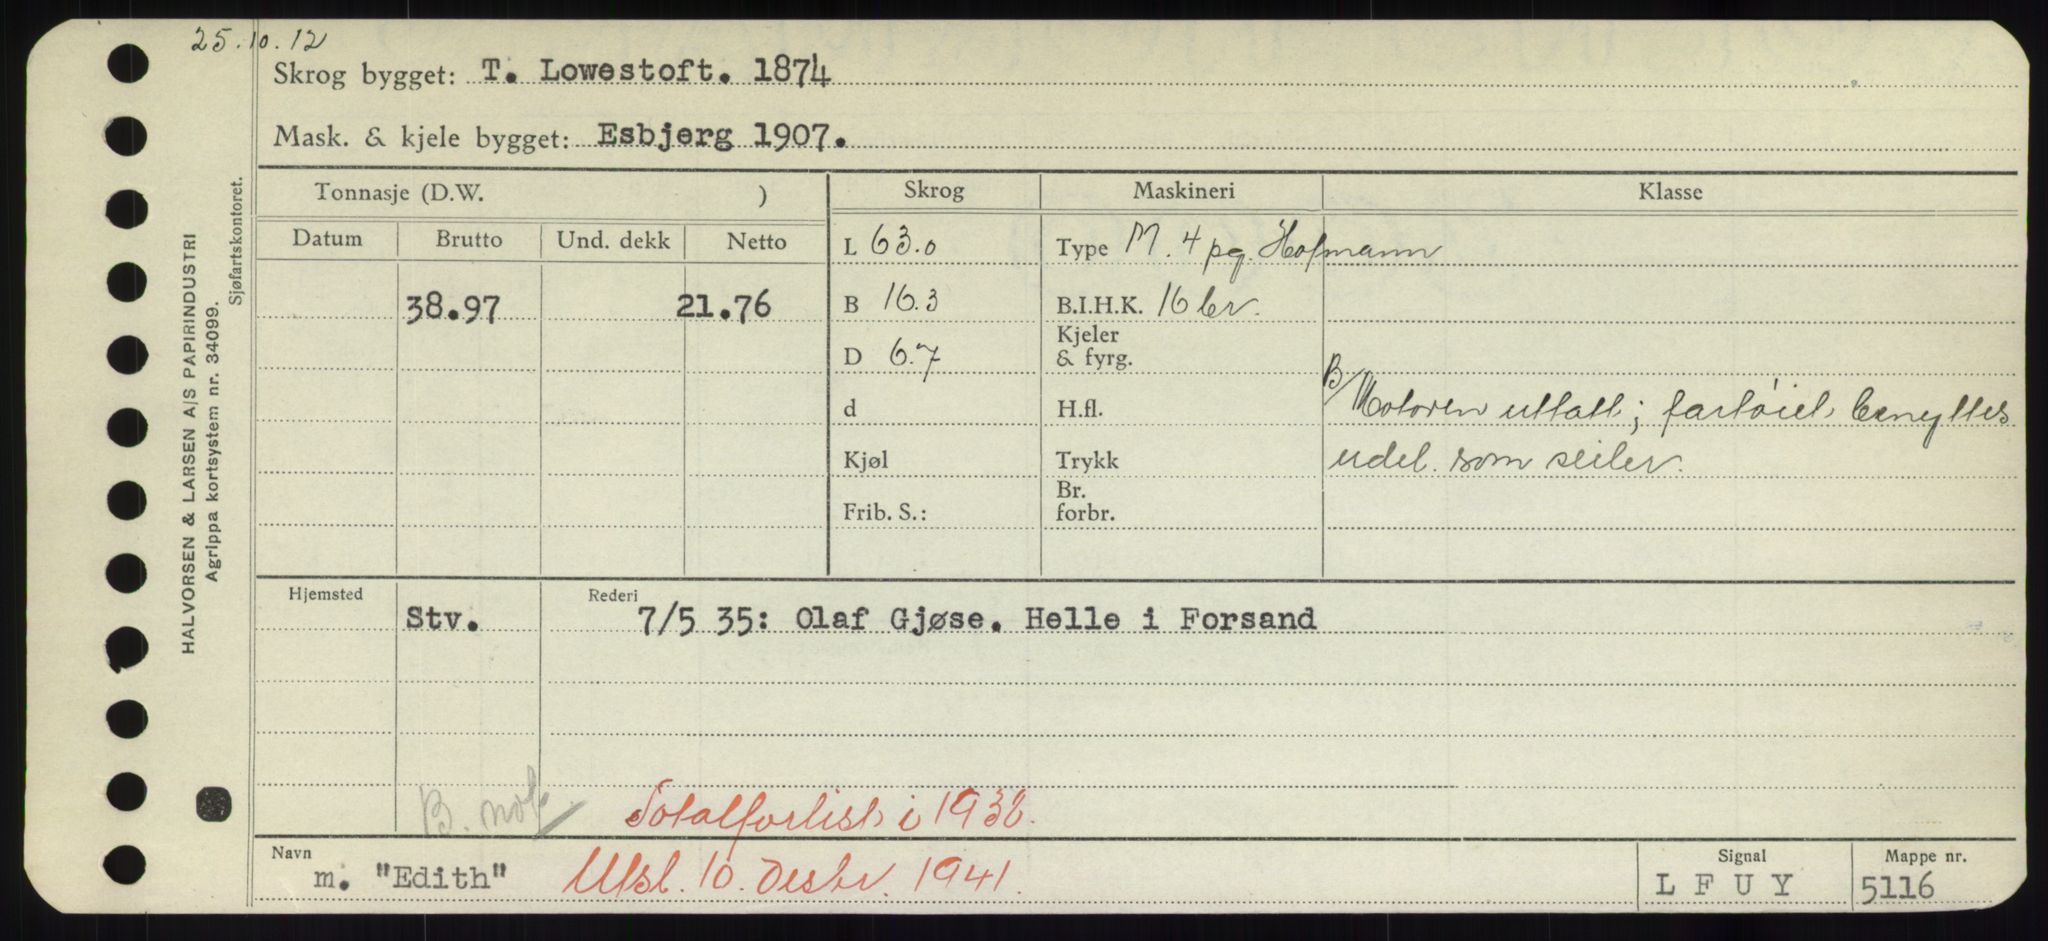 25.10.12
Skrog bygget: T. Lowestoft. 1874
Mask. & kjele bygget: Esbjerg 1907.
HALVORSEN & LARSEN A/S PAPIRINDUSTRI
Agrippa kortsystem nr. 34099.
Sjøfartskontoret.
Tonnasje (D.W. ) Skrog Maskineri Klasse
Datum Brutto Und. dekk Netto
L 63.0 Type M. 4 pg. Hofmann
38.97 21.76 B 16.3 B.I.H.K. 16 br.
D 6.7 Kjeler & fyrg.
B/ Motoren uttatt; fartøiet benyttes
d H.fl.
Kjøl Trykk udel. som seiler.
Frib. S.: Br. forbr.
Hjemsted Rederi
Stv. 7/5 35: Olaf Gjøse. Helle i Forsand
B. nok Totalforlist i 1938.
Navn Signal Mappe nr.
m. "Edith" Utsl. 10. Desbr. 1941. L F U Y 5116